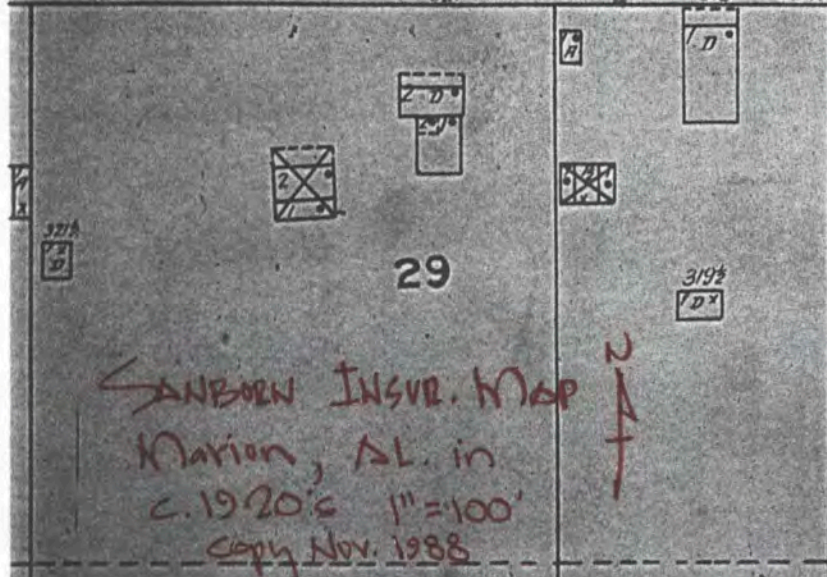 A
D
2 D
2
1
2
1
321½
D
29
319½
1 D x
N
SANBORN INSUR. MAP
Marion, AL. in
c. 1920's 1"=100'
copy Nov. 1988